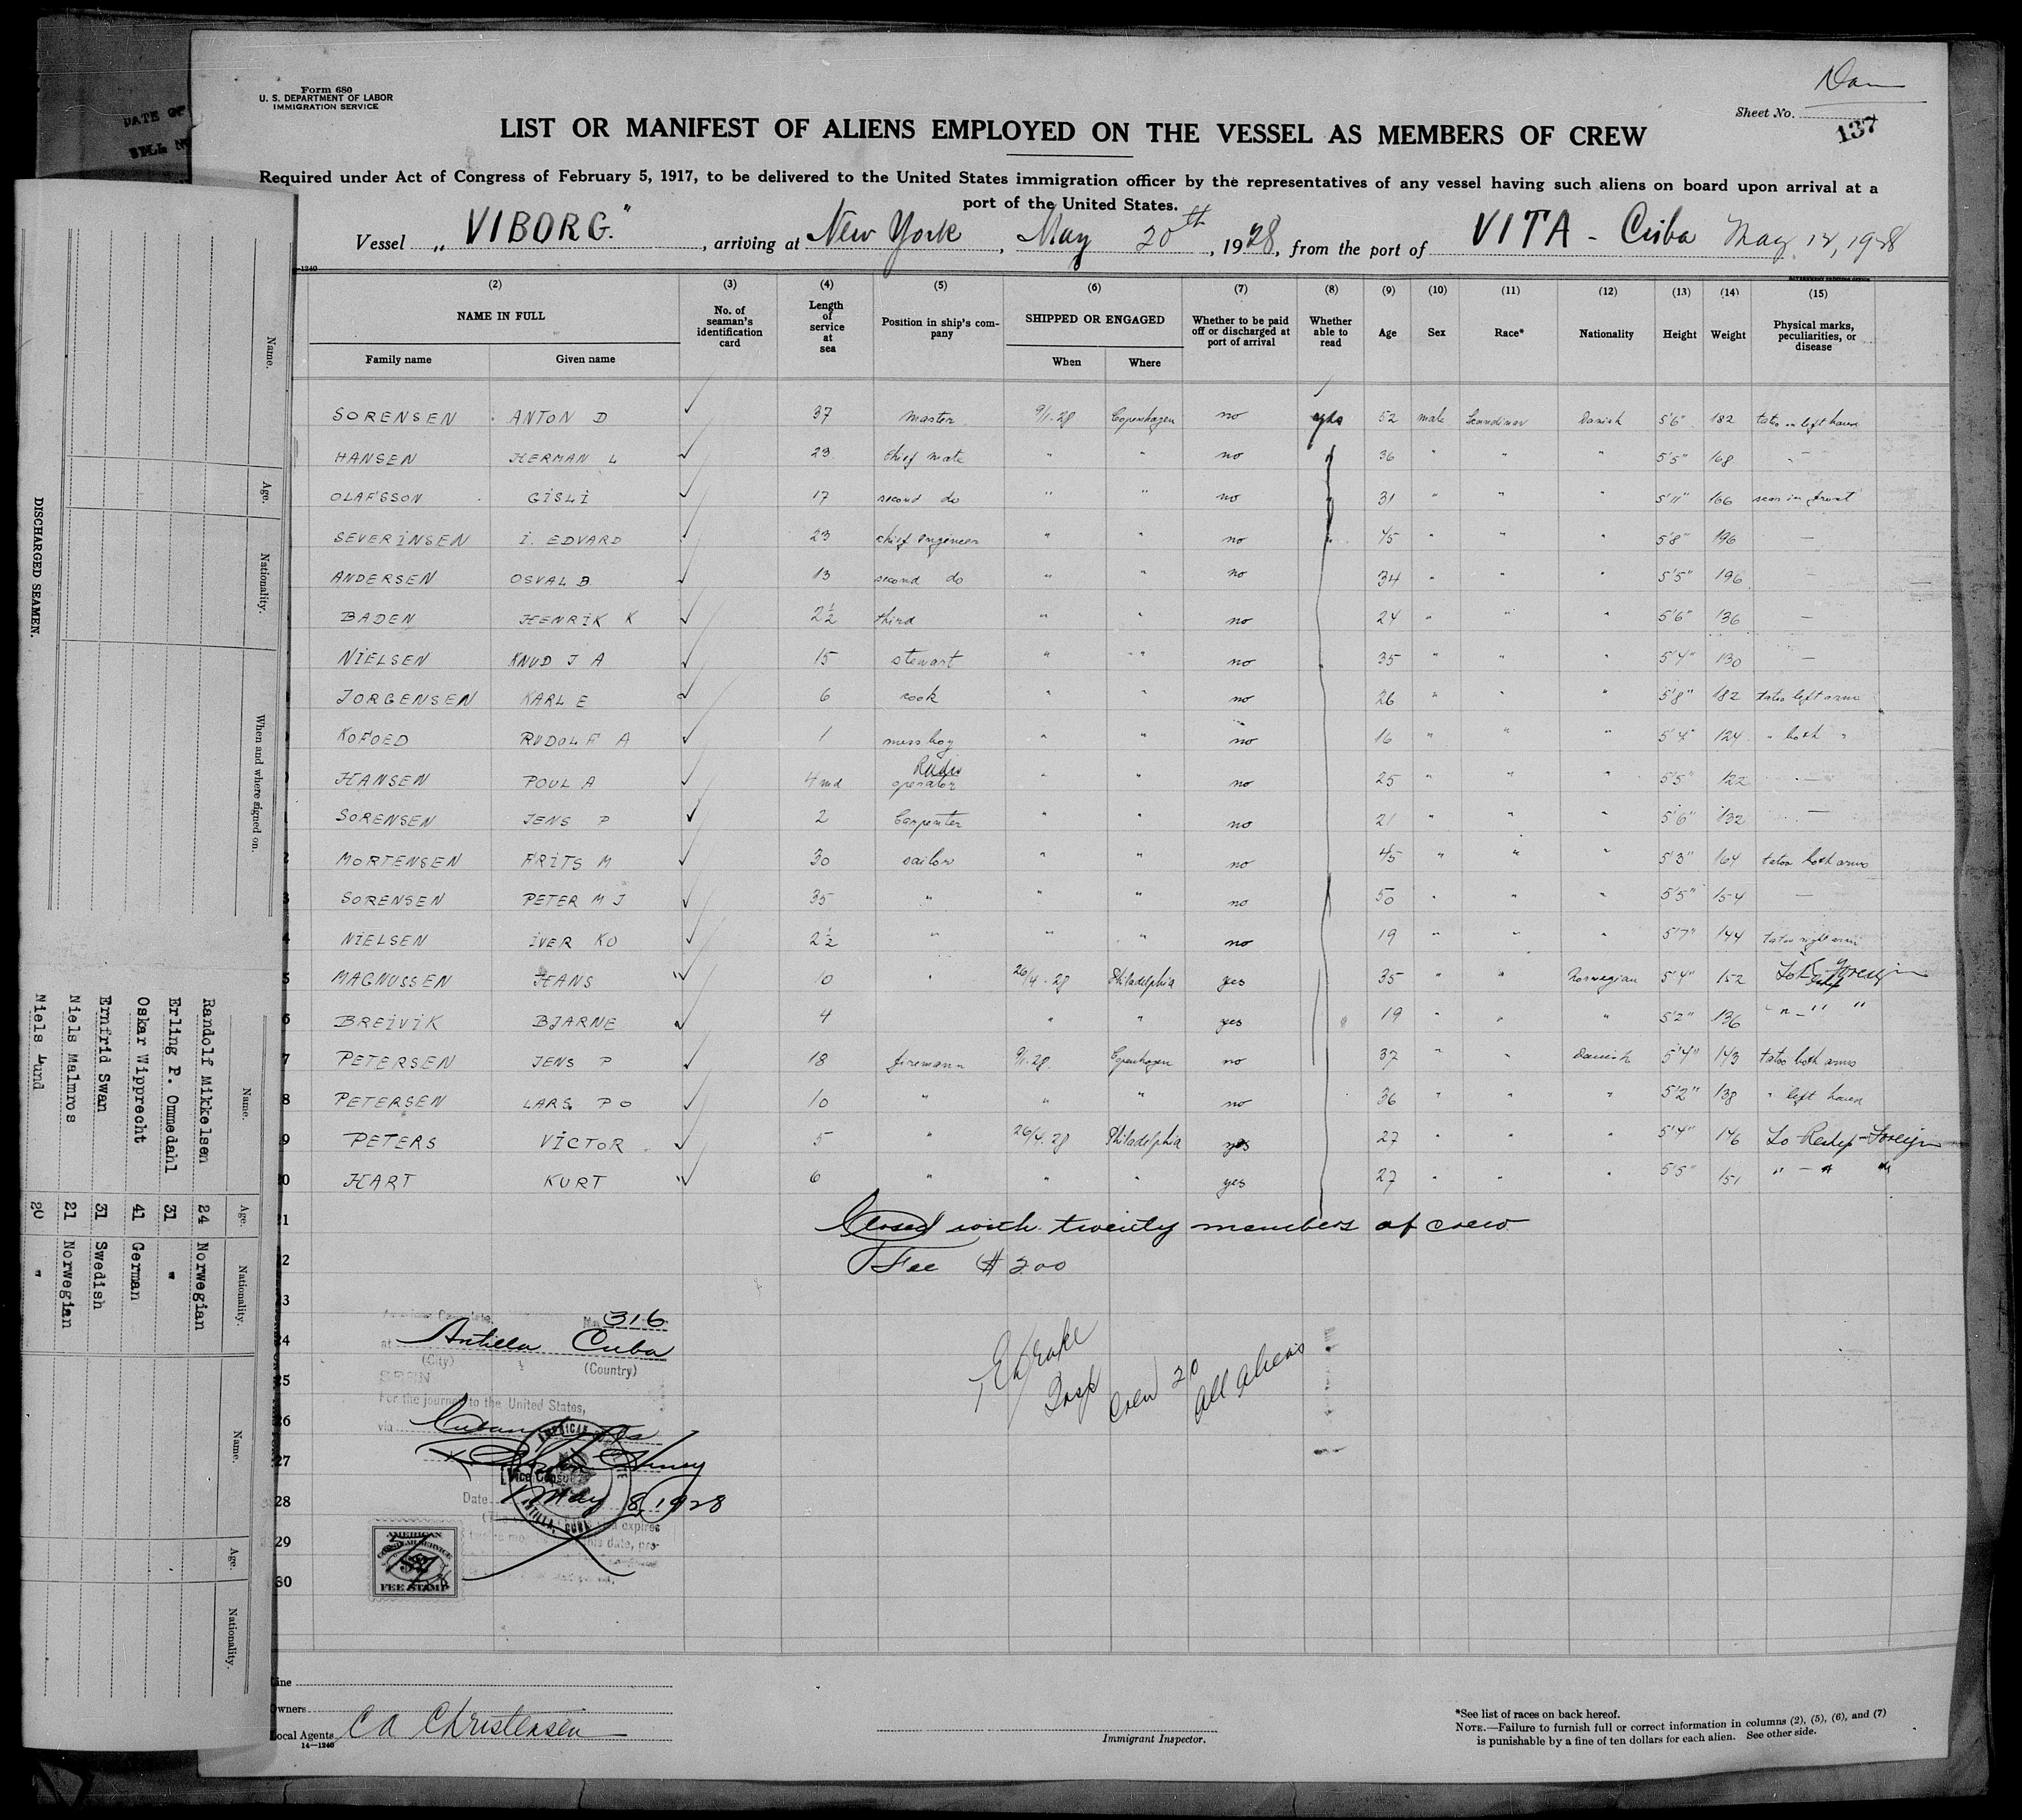 Form 680
U. S. DEPARTMENT OF LABOR
IMMIGRATION SERVICE
Dan
Sheet No.
137
LIST OR MANIFEST OF ALIENS EMPLOYED ON THE VESSEL AS MEMBERS OF CREW
Required under Act of Congress of February 5, 1917, to be delivered to the United States immigration officer by the representatives of any vessel having such aliens on board upon arrival at a
port of the United States.
Vessel „VIBORG", arriving at New York, May 20th, 1928, from the port of VITA - Cuba May 12, 1928
(2) (3) (4) (5) (6) (7) (8) (9) (10) (11) (12) (13) (14) (15)
NAME IN FULL No. of seaman's identification card Length of service at sea Position in ship's company SHIPPED OR ENGAGED Whether to be paid off or discharged at port of arrival Whether able to read Age Sex Race* Nationality Height Weight Physical marks, peculiarities, or disease
Family name Given name When Where
SORENSEN ANTON D 37 master 9/1-28 Copenhagen no yes 52 male Scandinav Danish 5'6" 182 tatoo on left hand
HANSEN HERMAN L 23 chief mate " " no " 36 " " " 5'5" 168 -
OLAFSSON GISLI 17 second do " " no 31 " " " 5'11" 166 scar in front
SEVERINSEN I. EDVARD 23 chief engineer " " no " 45 " " " 5'8" 196 —
ANDERSEN OSVAL B 13 second do " " no 34 " " " 5'5" 196 —
BADEN HENRIK K 2½ third " " no 24 " " " 5'6" 136 —
NIELSEN KNUD J A 15 stewart " " no 35 " " " 5'4" 130 —
JORGENSEN KARL E 6 cook " " no 26 " " " 5'8" 182 tatoo left arm
KOFOED RUDOLF A 1 messboy " " no 16 " " " 5'4" 124 " both "
HANSEN POUL A 4 md Radio operator " " no 25 " " " 5'5" 122 —
SORENSEN JENS P 2 Carpenter " " no 21 " " " 5'6" 132 —
MORTENSEN FRITS M 30 sailor " " no 45 " " " 5'3" 164 tatoo both arms
SORENSEN PETER M J 35 " " " no 50 " " " 5'5" 154 —
NIELSEN IVER KO 2½ " " " no 19 " " " 5'7" 144 tatoo right arm
MAGNUSSEN HANS 10 " 26/4-28 Philadelphia yes 35 " " Norwegian 5'4" 152 To Reship Foreign
BREIVIK BJARNE 4 " " yes 19 " " " 5'2" 136 " " "
PETERSEN JENS P 18 firemann 9/1-28 Copenhagen no 37 " " Danish 5'4" 143 tatoo both arms
PETERSEN LARS P O 10 " " " no 36 " " " 5'2" 138 " left hand
PETERS VICTOR 5 " 26/4.28 Philadelphia yes 27 " " " 5'4" 146 To Reship - Foreign
HART KURT 6 " " " yes 27 " " " 5'5" 151 " - " "
Closed with twenty members of crew
Fee $ 200
No. 316
at Antilla Cuba
(City) (Country)
SEEN
For the journey to the United States,
via
Vice Consul
Date May 8, 1928
AMERICAN CONSULATE
ANTILLA, CUBA
AMERICAN
CONSULAR SERVICE
$2
FEE STAMP
Insp
Crew 20
All Aliens
24
25
26
27
28
29
30
Line
Owners
Local Agents C A Christensen
14—1240
Immigrant Inspector.
*See list of races on back hereof.
NOTE.—Failure to furnish full or correct information in columns (2), (5), (6), and (7)
is punishable by a fine of ten dollars for each alien. See other side.
DISCHARGED SEAMEN.
Name. Age. Nationality. When and where signed on.
Name. Age. Nationality.
Randolf Mikkelsen 24 Norwegian
Erling P. Ommedahl 31 "
Oskar Wipprecht 41 German
Ernfrid Swan 31 Swedish
Niels Malmros 21 Norwegian
Niels Lund 20 "
Name. Age. Nationality.